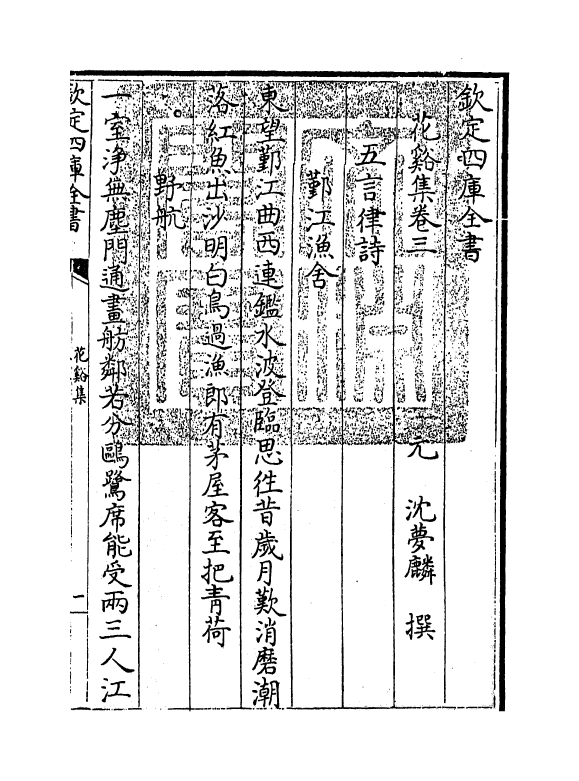 欽定四庫全書
花谿集卷三
元 沈夢麟 撰
五言律詩
鄞江漁舍
東望鄞江曲西連鑑水波登臨思往昔歲月歎消磨潮
落紅魚出沙明白鳥過漁郎有茅屋客至把青荷
野航
一室浄無塵門通畫舫鄰若分鷗鷺席能受兩三人江
欽定四庫全書
花谿集